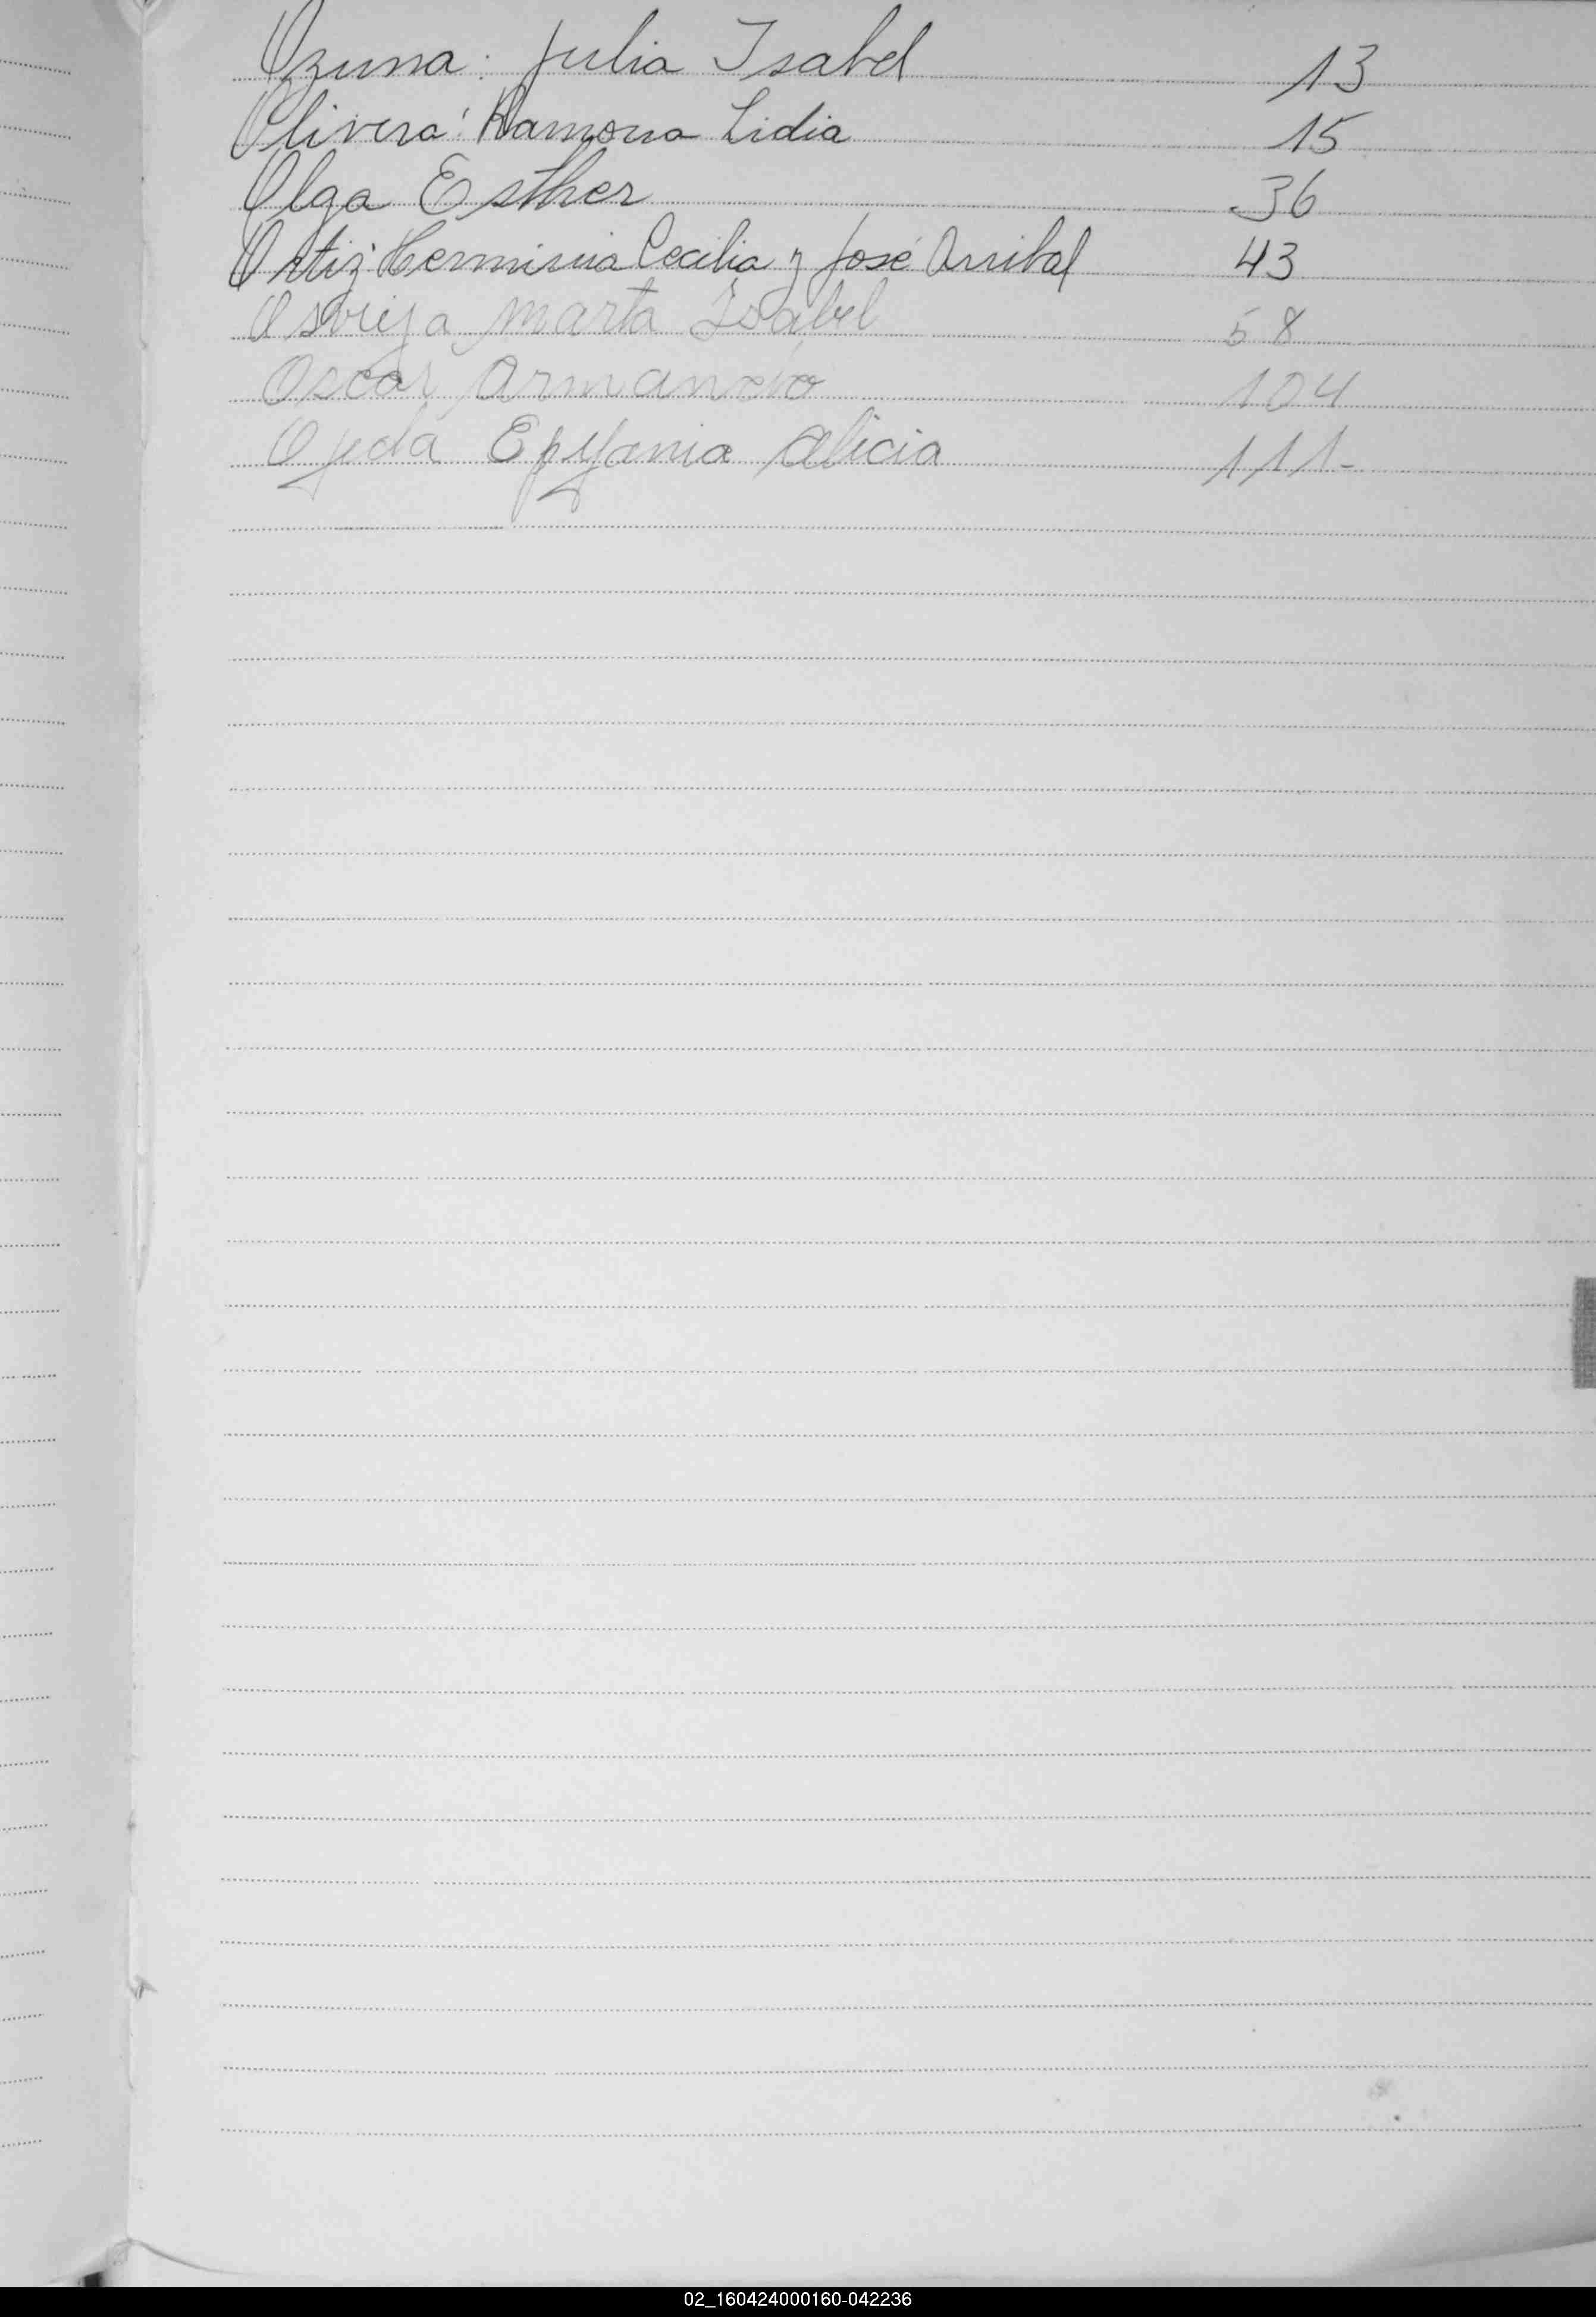 Ozuna: Julia Isabel 13
Olivera: Ramona Lidia 15
Olga Esther 36
Ortiz: Herminia Cecilia y José Annibal 43
Marta Isabel 58
Oscar Armando 104
Ojeda Epifania Alicia 111-
02_160424000160-042236